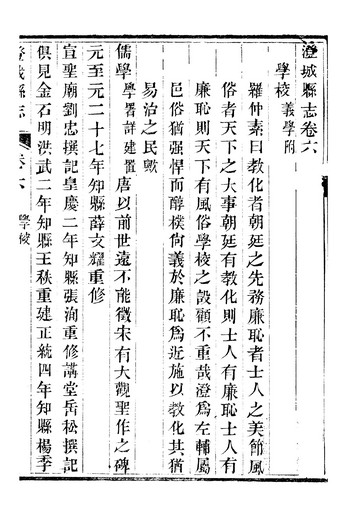 澄城縣志卷六
學校 義學附
羅仲素曰教化者朝廷之先務廉恥者士人之美節風
俗者天下之大事朝廷有教化則士人有廉恥士人有
廉恥則天下有風俗學校之設顧不重哉澄爲左輔屬
邑俗猶强悍而醇樸尙義於廉恥爲近施以教化其猶
易治之民歟
儒學 學署詳建置 唐以前世遠不能徵宋有大觀聖作之碑
元至元二十七年知縣薛文耀重修
宣聖廟劉忠撰記皇慶二年知縣張洵重修講堂岳松撰記
俱見金石明洪武二年知縣王秩重建正統四年知縣楊季
澄城縣志 卷六 學校